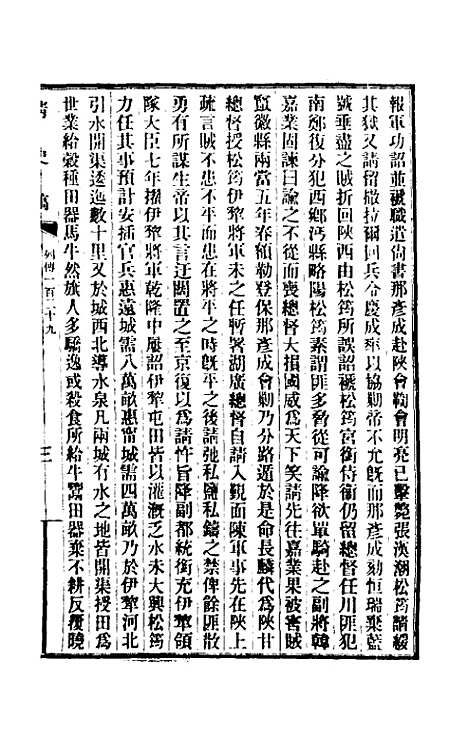 報軍功詔並褫職遣尚書那彥成赴陝會鞫會明亮已擊斃張漢潮松筠請緩
其獄又請留撒拉爾回兵令慶成率以協勦帝不允旣而那彥成劾恒瑞棄藍
號垂盡之賊折回陝西由松筠所誤詔褫松筠宮銜侍衞仍留總督任川匪犯
南鄭復分犯西鄉沔縣略陽松筠素謂匪多脅從可諭降欲單騎赴之副將韓
嘉業固諫曰諭之不從而喪總督大損國威爲天下笑請先往嘉業果被害賊
竄徽縣兩當五年春額勒登保那彥成會勦乃分路遁於是命長麟代爲陝甘
總督授松筠伊犂將軍未之任暫署湖廣總督自請入覲面陳軍事先在陝上
疏言賊不患不平而患在將平之時旣平之後請弛私鹽私鑄之禁俾餘匪散
勇有所謀生帝以其言迂闊置之至京復以爲請忤旨降副都統銜充伊犂領
隊大臣七年擢伊犂將軍乾隆中屢詔伊犂屯田皆以灌漑乏水未大興松筠
力任其事預計安插官兵惠遠城需八萬畝惠甯城需四萬畝乃於伊犂河北
引水開渠逶迤數十里又於城西北導水泉凡兩城有水之地皆開渠授田爲
世業給穀種田器馬牛然旗人多驕逸或殺食所給牛鬻田器棄不耕反覆曉
清史稿
列傳一百二十九
三